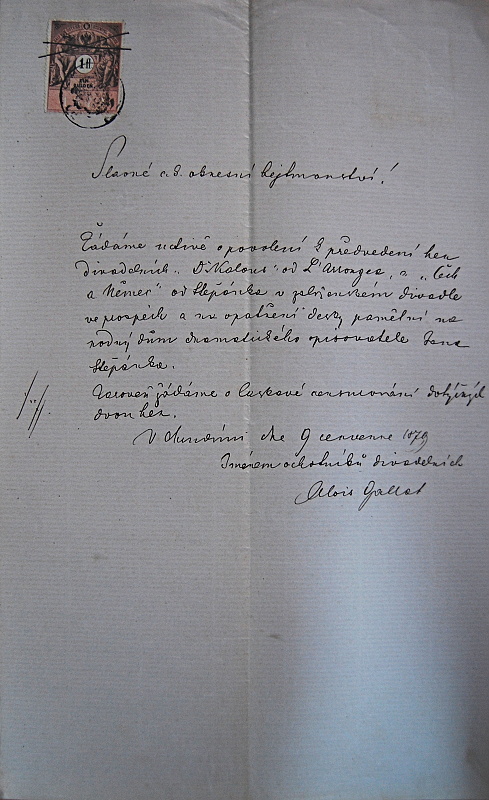 1 fl
Slavné c. k. okresní hejtmanství!
Žádáme uctivě o povolení k předvedení her
divadelních „Dr Kalous“ od L'Arronga, a „Čech
a Němec“ od Štěpánka v zdejším divadle
ve prospěch a na opatření desky pamětní na
rodný dům dramatického spisovatele Jana
Štěpánka.
Zároveň žádáme o laskavé censurování dotyčných
dvou her.
V Chrudimi dne 9 července 1879
Jménem ochotníků divadelních
Alois Gallat